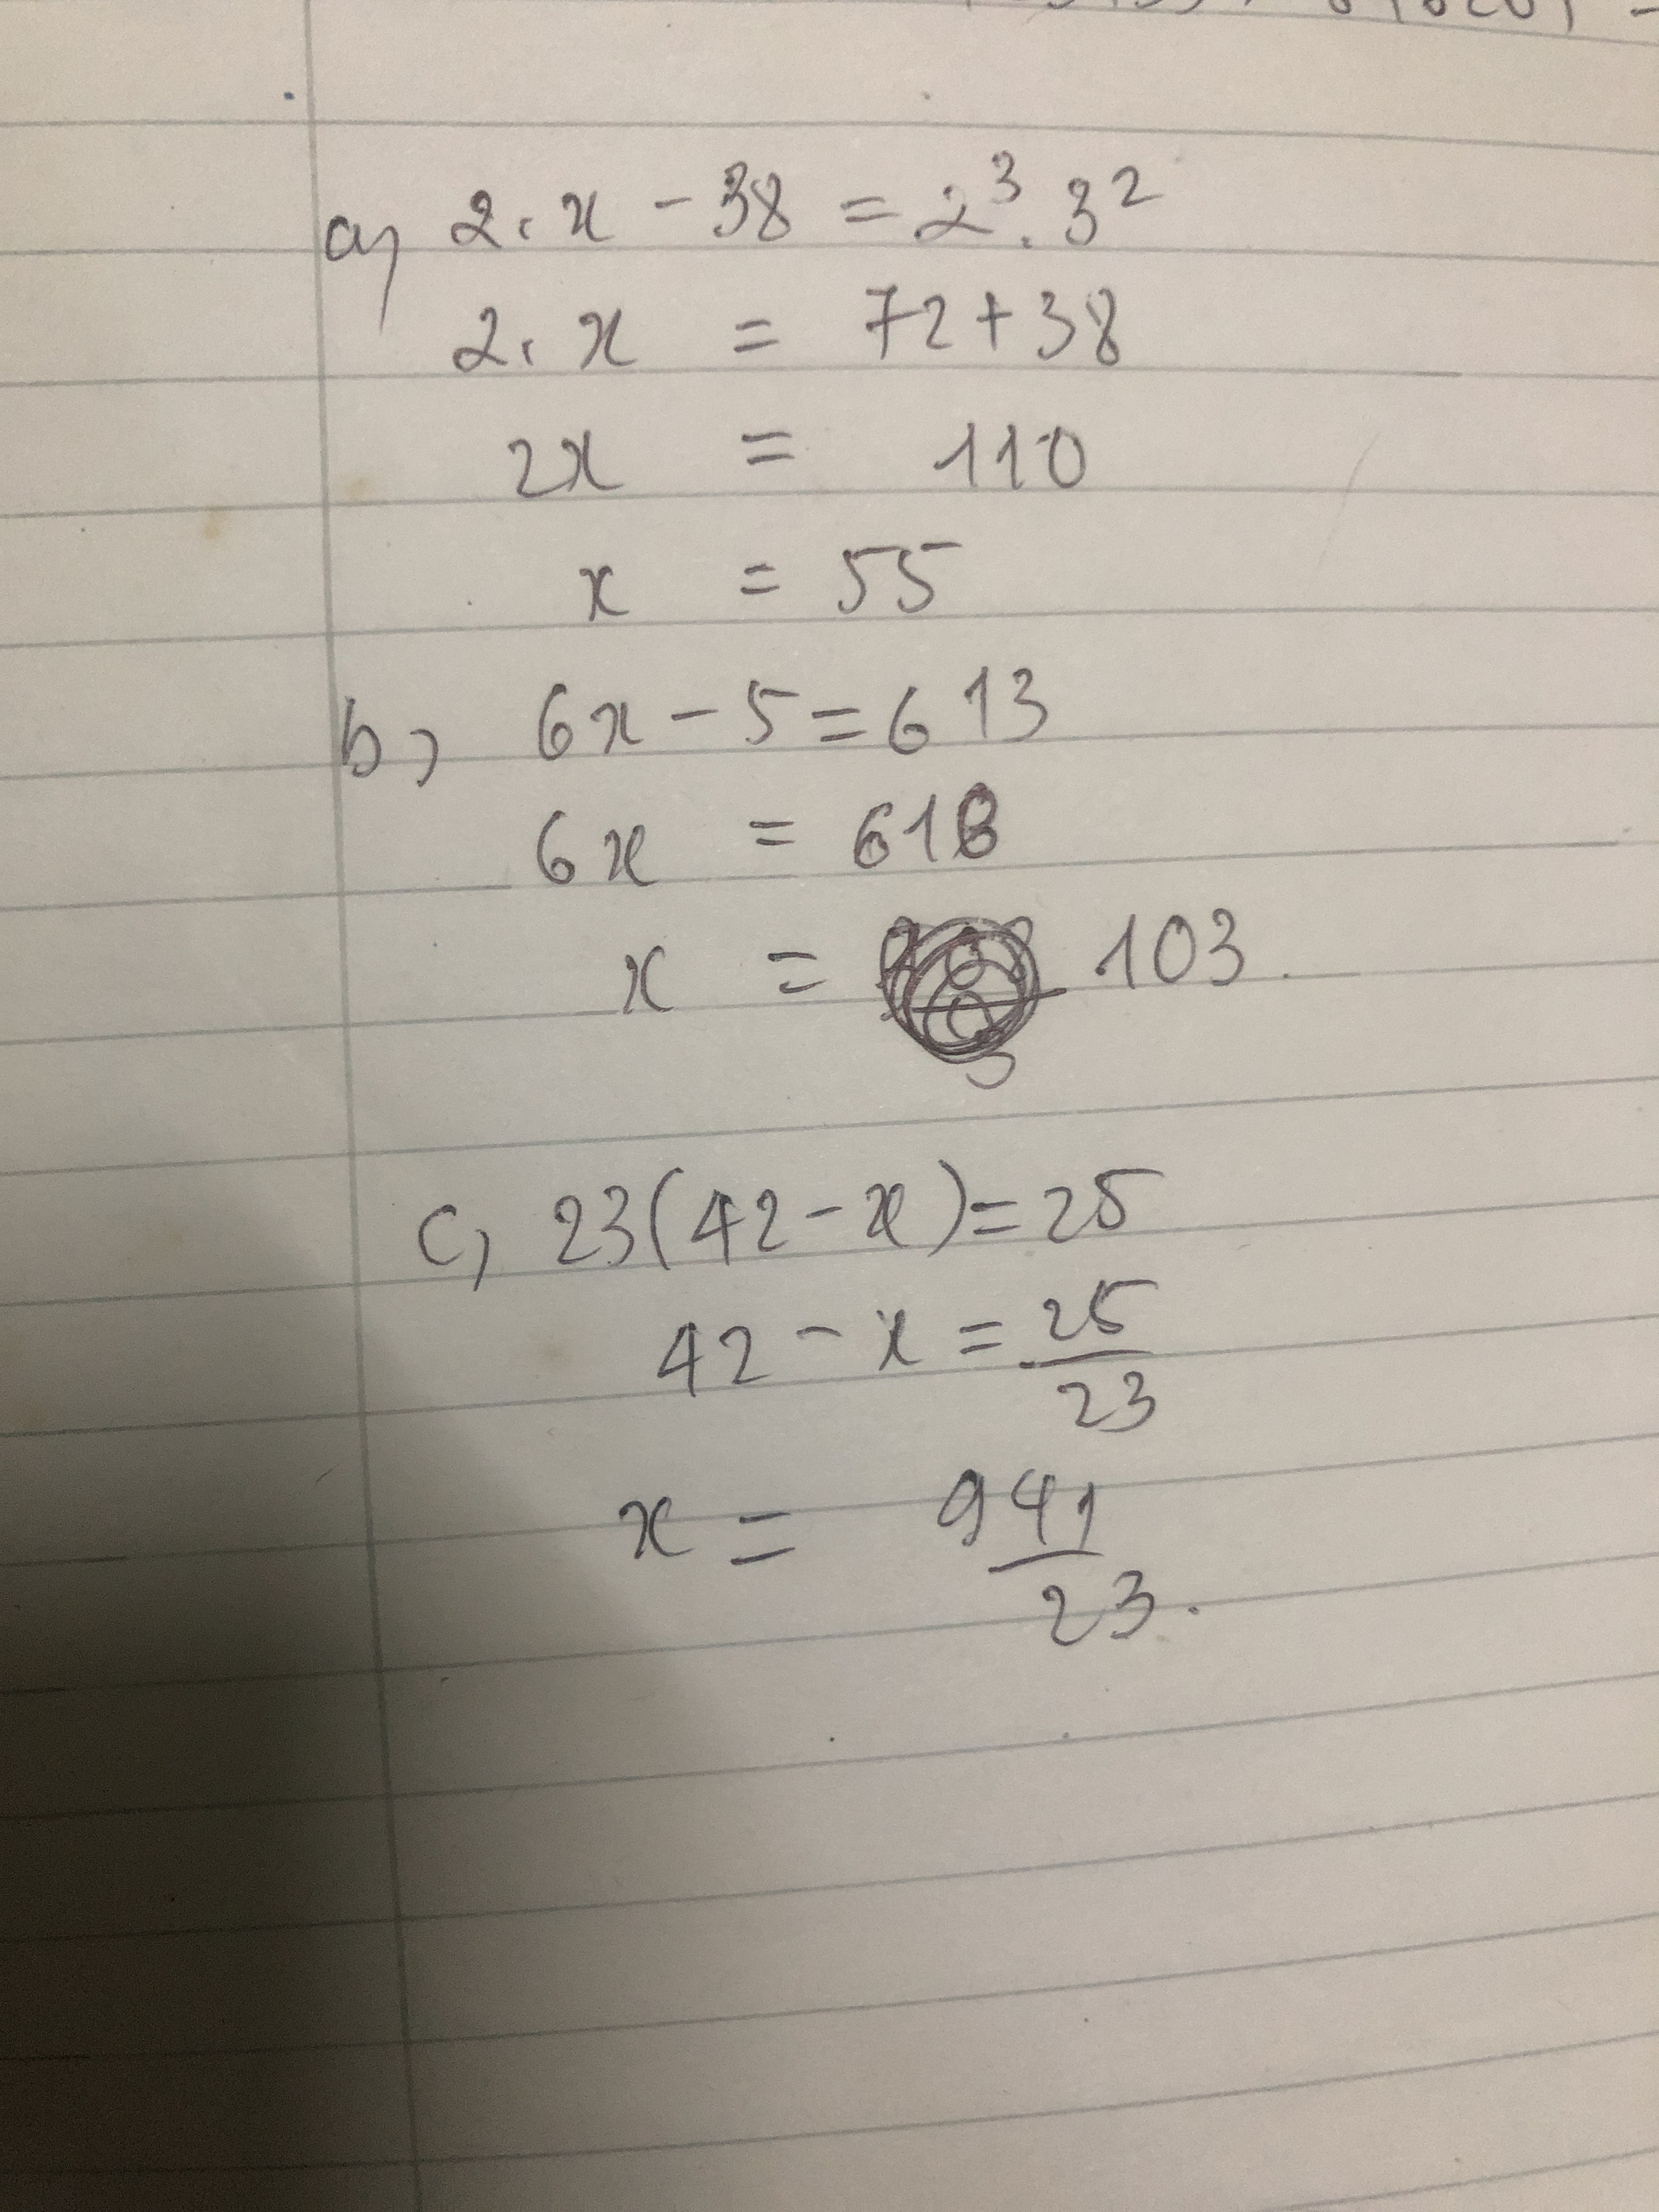 a) 2.x - 38 = 2³.3²
2.x = 72+38
2x = 110
x = 55
b) 6x - 5 = 613
6x = 618
x = 103.
c) 23(42-x) = 25
42 - x = 25/23
x = 941/23.